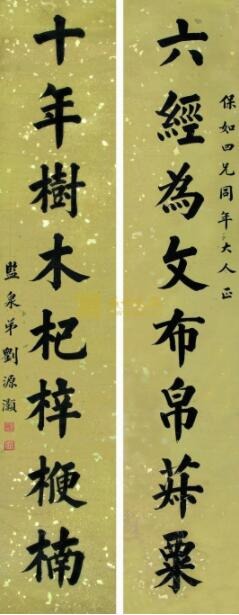 保如四兄同年大人正
六經為文布帛菽粟
十年樹木杞梓楩楠
監泉弟劉源灝